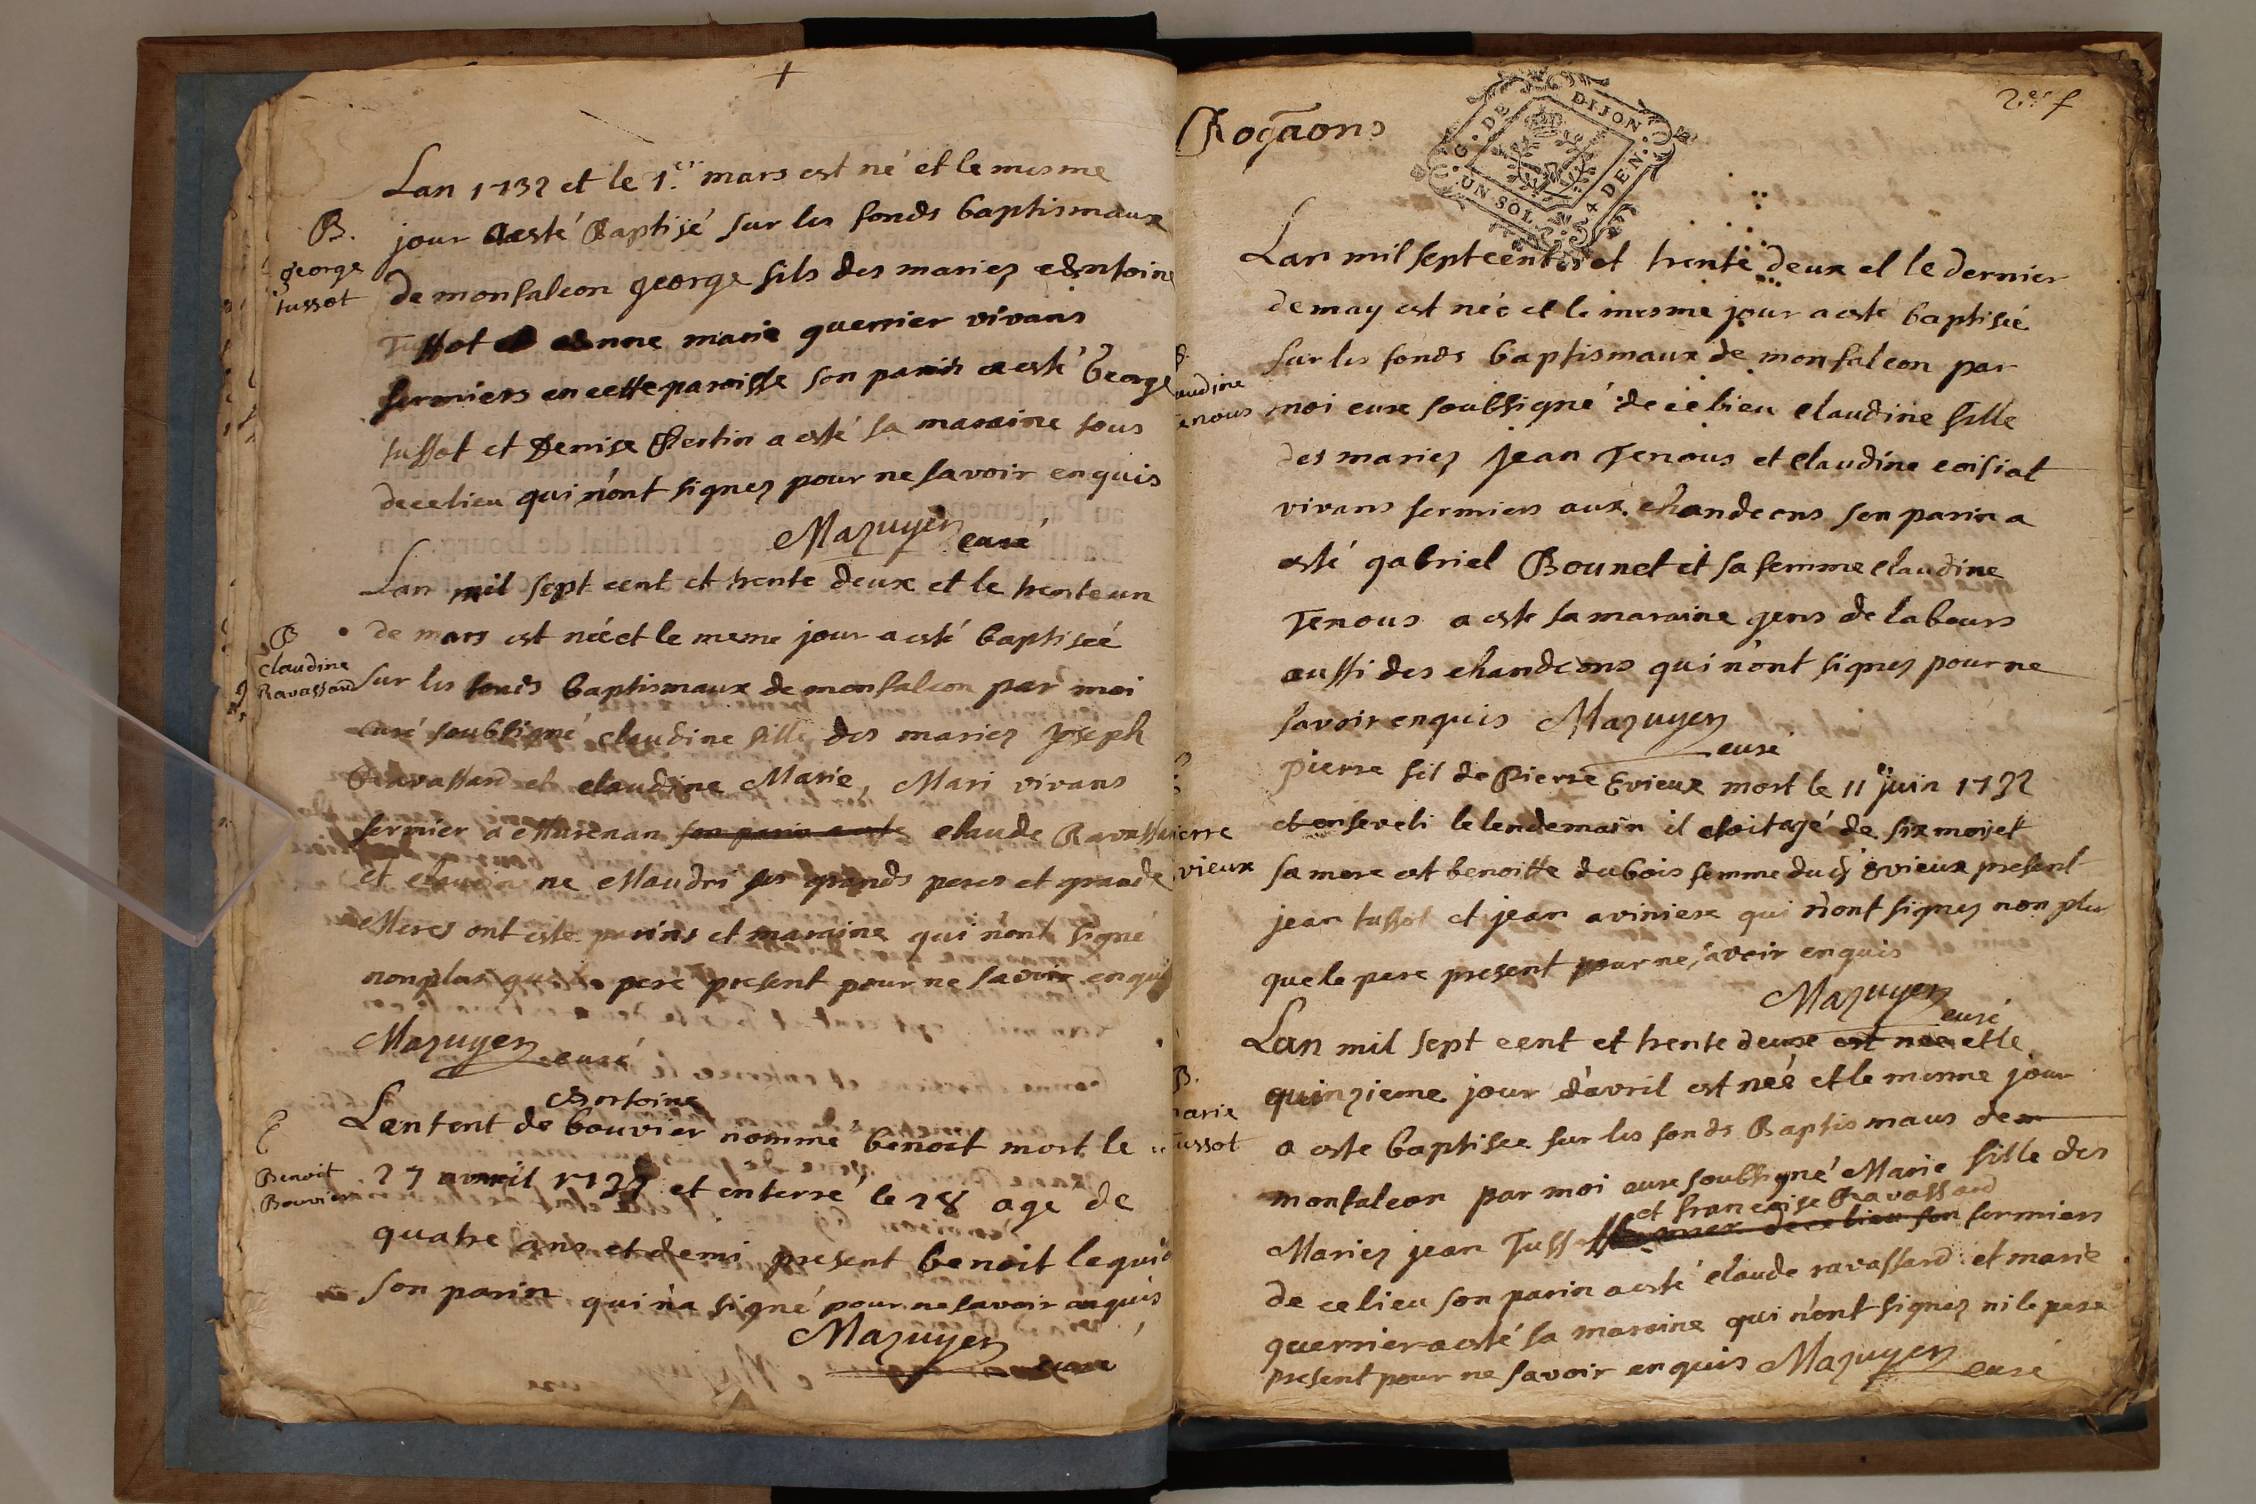 Lan 1732 et le 1.er mars est né et le mesme
B. jour a esté Baptisé sur les fonds baptismaux
george de monfalcon george fils des mariez Antoine
tussot
Tussot et Anne marie guerrier vivans
fermiers en cette paroisse son parin a esté George
tussot et Denise Pertin a esté sa maraine tous
de ce lieu qui n'ont signez pour ne savoir enquis
Mazuyer curé
Lan mil sept cent et trente deux et le trente un
B de mars est née et le meme jour a esté baptiseé
claudine
Ravassard sur les fonds baptismaux de monfalcon par moi
curé soubsigné claudine fille des mariez Joseph
Ravassard et claudine Marie, Mari vivans
fermier a Marcnan son parin a esté claude Ravass
et claudine Maudri ses grands peres et grande
Meres ont este parins et maraine qui n'ont signé
non plus que le pere present pour ne savoir enquis
Mazuyer curé
Antoine
E Lenfent de bouvier nommé benoit mort le
Benoit 27 avvril 1732 et enterré le 28 age de
Bouvier
quatre ans et demi present benoit lequi
son parin qui n'a signé pour ne savoir enquis
Mazuyer curé
2.e f
Rogãons
G. DE DIJON
UN SOL 4 DEN.
Lan mil sept cent et trente deux et le dernier
de may est née et le mesme jour a esté baptiseé
B. sur les fonds baptismaux de monfalcon par
audine
enous moi cure soubsigné de ce lieu claudine fille
des mariez Jean Tenous et claudine coisiat
vivans fermiers aux chandeons son parin a
esté gabriel Bounet et sa femme claudine
Tenous a este sa maraine gens de labours
aussi des chandeons qui n'ont signez pour ne
savoir enquis Mazuyer curé
Pierre fil de Pierre Evieux mort le 11 juin 1732
ierre et enseveli le lendemain il etoit agé de six mois et
vieux sa mere est benoitte dubois femme dud evieux present
jean tussot et jean aviniere qui n'ont signez non plus
que le pere present pour ne savoir enquis
Mazuyer curé
Lan mil sept cent et trente deux est neé et le
B. quinzieme jour d'avril est neé et le mesme jour
arie
ussot a este baptisee sur les fonds Baptismaus de
monfalcon par moi cure soubsigné Marie fille des
et francoise Ravassard
Mariez jean Tussot de ce lieu son fermiers
de ce lieu son parin a esté claude ravassard et marie
guerrier a esté sa maraine qui n'ont signez ni le pere
present pour ne savoir enquis Mazuyer curé